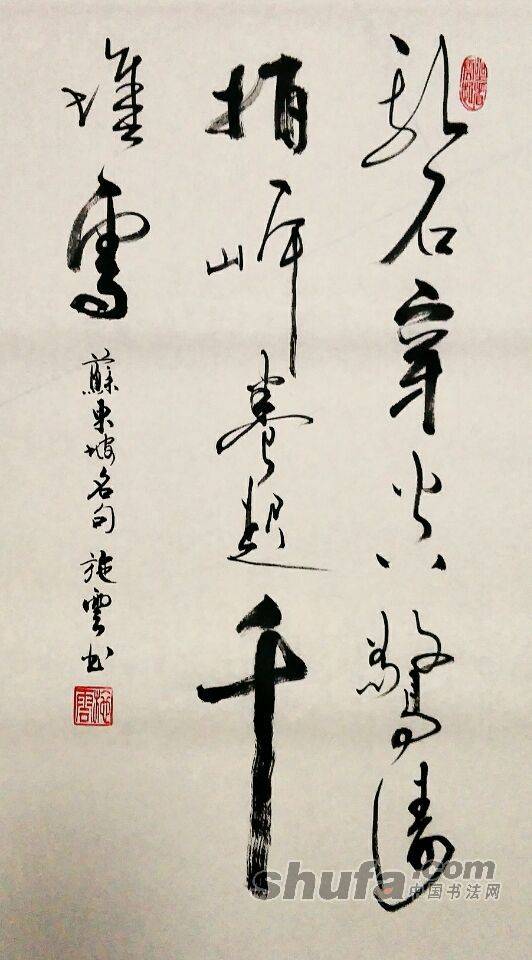 亂石穿空驚濤
拍岸卷起千
堆雪
蘇東坡名句 施雲书
施雲
shufa.com
中国书法网